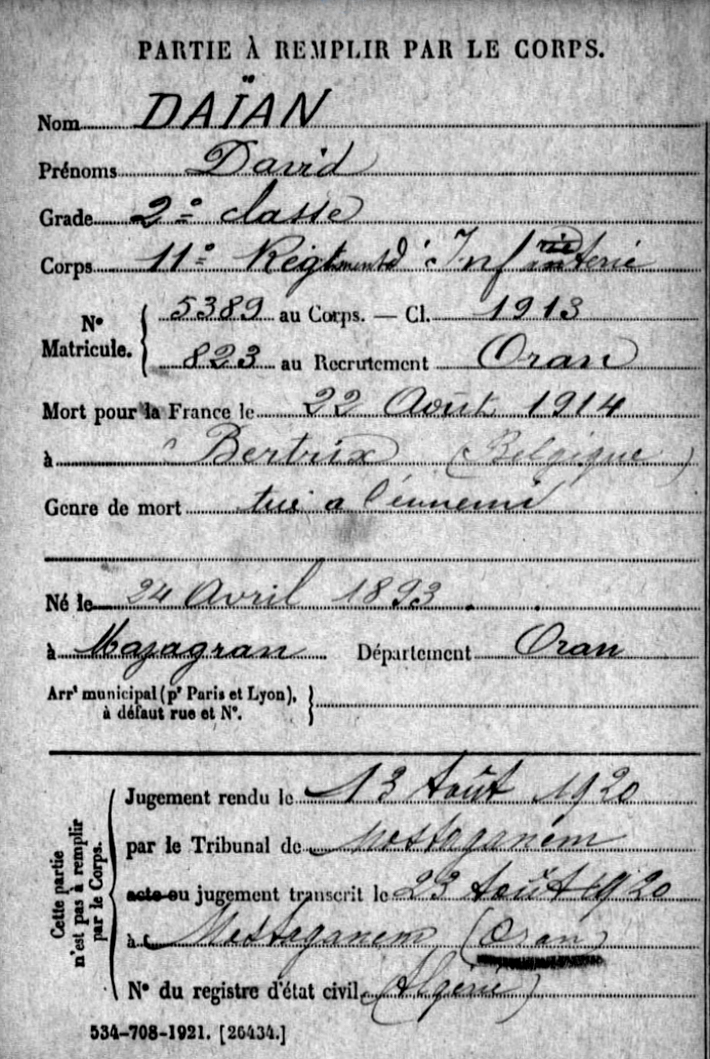 PARTIE À REMPLIR PAR LE CORPS.
Nom DAÏAN
Prénoms David
Grade 2e classe
Corps 11e Régiment d'Infanterie
N° Matricule. 5389 au Corps. — Cl. 1913
823 au Recrutement Oran
Mort pour la France le 22 Août 1914
à Bertrix (Belgique)
Genre de mort tué a l'ennemi
Né le 24 Avril 1893
à Mazagran Département Oran
Arrt municipal (pr Paris et Lyon),
à défaut rue et N°.
Cette partie
n'est pas à remplir
par le Corps.
Jugement rendu le 13 Août 1920
par le Tribunal de Mostaganem
acte ou jugement transcrit le 23 Août 1920
à Mostaganem (Oran)
N° du registre d'état civil (Algérie)
534-708-1921. [26434.]